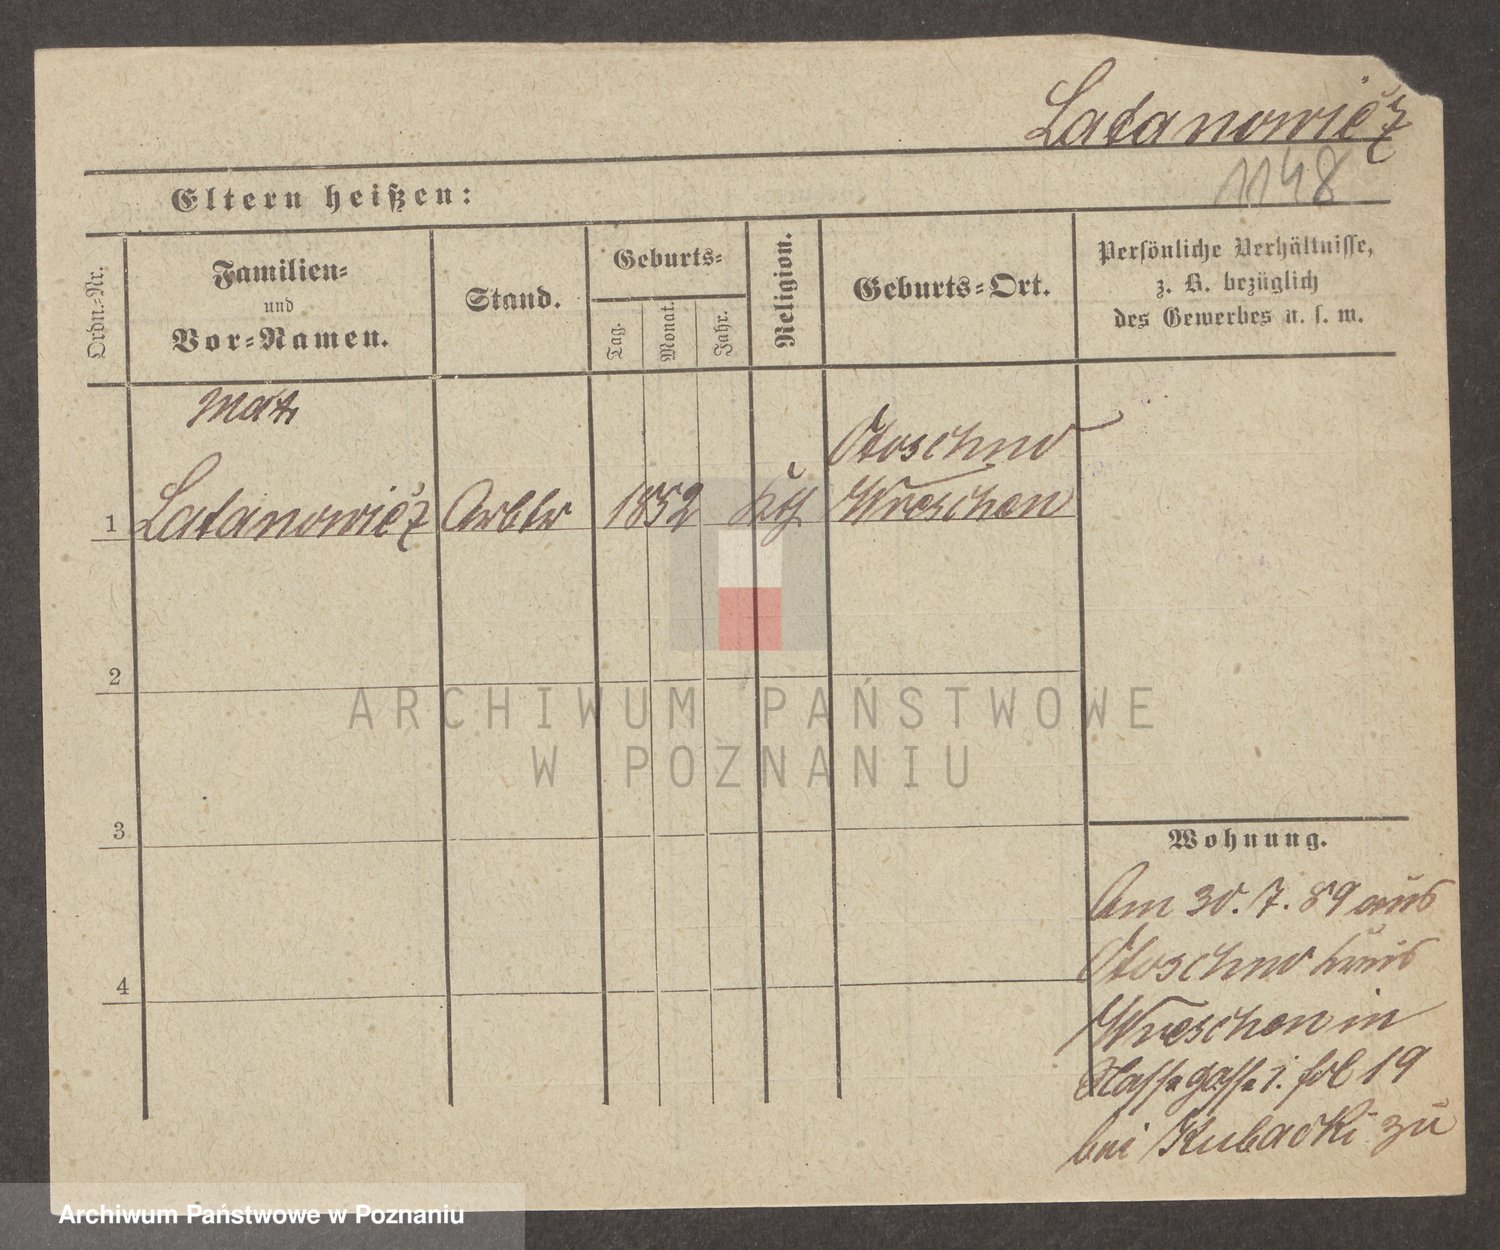 Latanowicz
1148
Eltern heißen:
Ordn.-Nr.
Familien-
und
Vor-Namen.
Stand.
Geburts-
Tag.
Monat.
Jahr.
Religion.
Geburts-Ort.
Persönliche Verhältnisse,
z. B. bezüglich
des Gewerbes u. s. w.
Mat.
Otoschno
1 Latanowicz Arbtr 1852 Kth Wreschen
2
3
4
Wohnung.
Am 30. 7. 89 aus
Otoschno Kreis
Wreschen in
19
bei Kubacki zu
ARCHIWUM PAŃSTWOWE
W POZNANIU
Archiwum Państwowe w Poznaniu